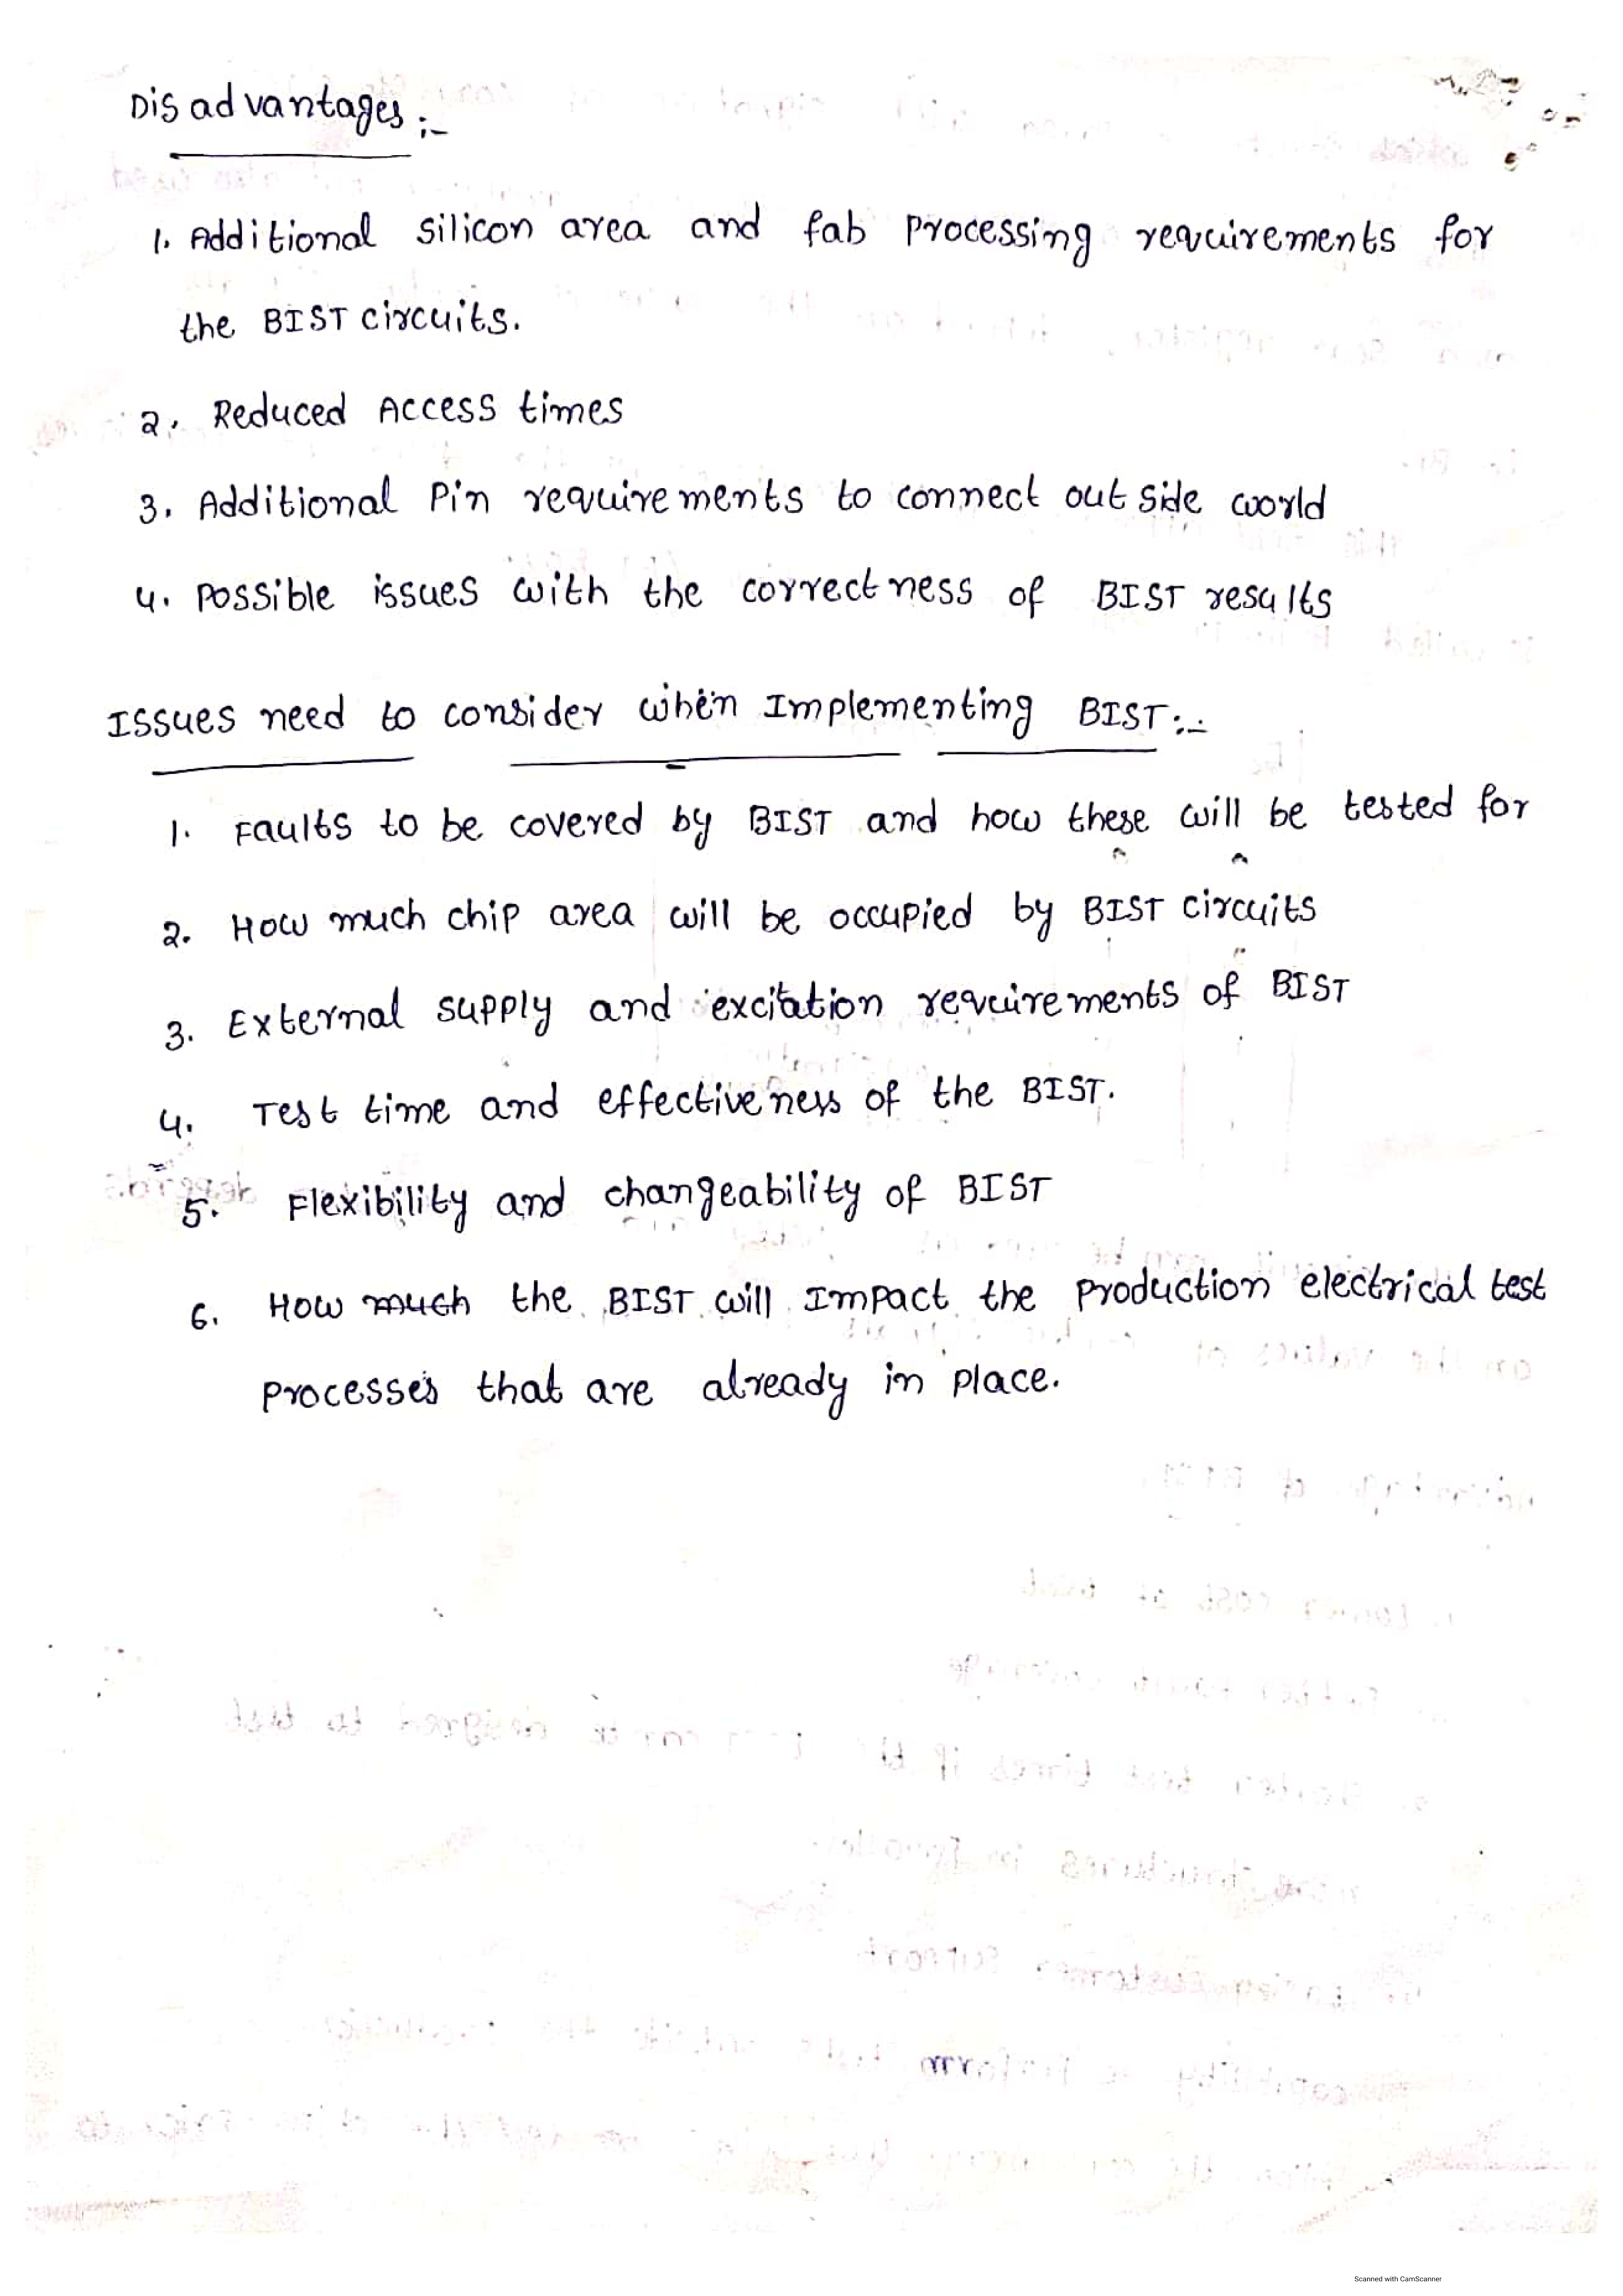 Disadvantages :-
1. Additional silicon area and fab processing requirements for
the BIST circuits.
2. Reduced Access times
3. Additional Pin requirements to connect outside world
4. Possible issues with the correctness of BIST results
Issues need to consider when Implementing BIST :-
1. Faults to be covered by BIST and how these will be tested for
2. How much chip area will be occupied by BIST circuits
3. External supply and excitation requirements of BIST
4. Test time and effectiveness of the BIST.
5. Flexibility and changeability of BIST
6. How much the BIST will Impact the production electrical test
processes that are already in place.
Scanned with CamScanner